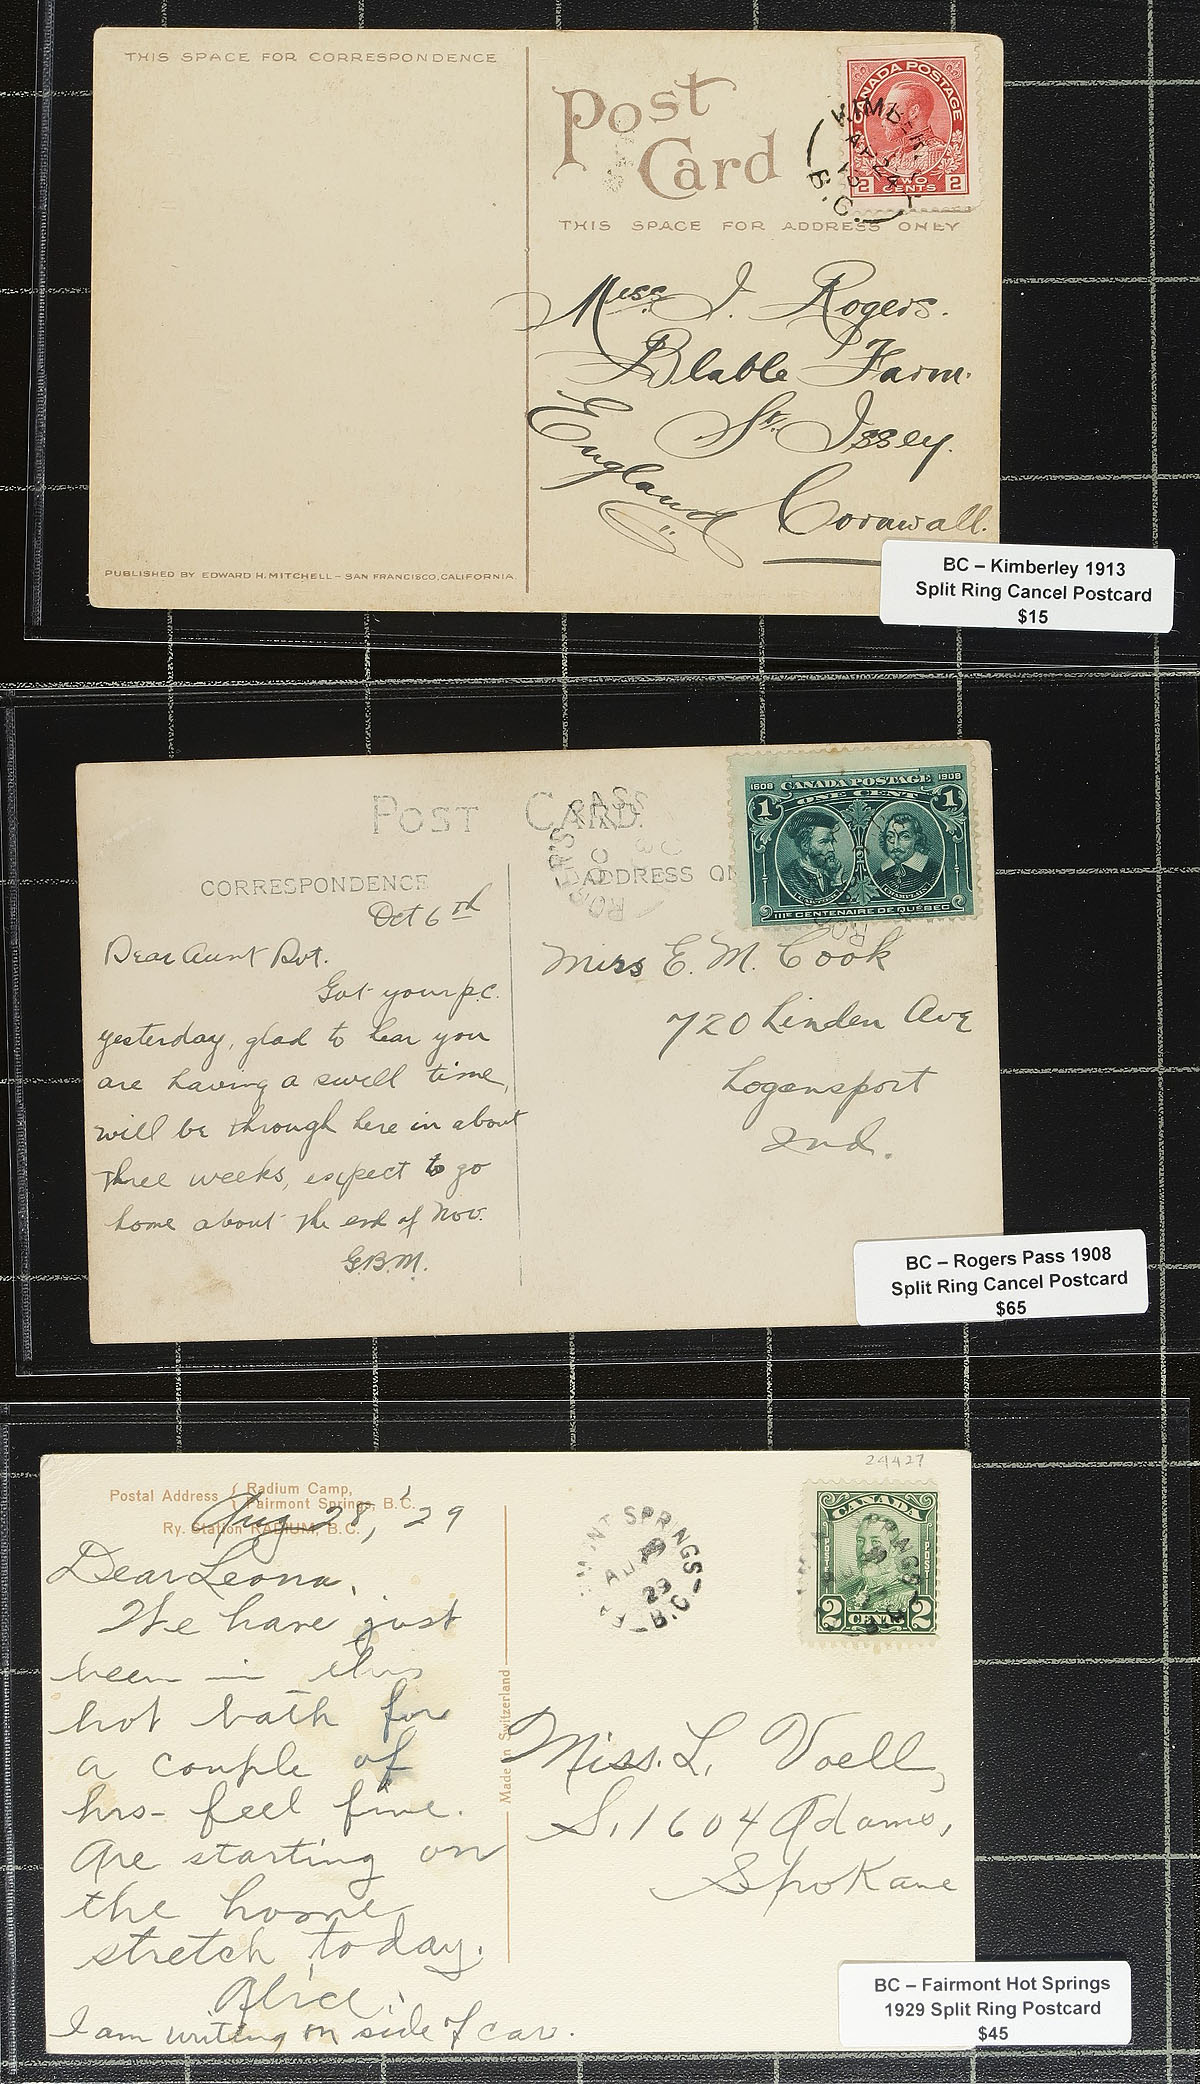 THIS SPACE FOR CORRESPONDENCE
Post
Card
CANADA POSTAGE
2 TWO CENTS 2
KIMBER
24
13
B.C.
THIS SPACE FOR ADDRESS ONLY
Miss. J. Rogers.
Blable Farm.
St. Issey.
England
Cornwall.
PUBLISHED BY EDWARD H. MITCHELL – SAN FRANCISCO, CALIFORNIA.
BC – Kimberley 1913
Split Ring Cancel Postcard
$15
POST CARD
1608 CANADA POSTAGE 1908
1 ONE CENT 1
IIIe CENTENAIRE DE QUÉBEC
ROGER'S PASS
CORRESPONDENCE
ADDRESS ON
Oct 6th
Dear Aunt Dot.
Got your p.c.
yesterday, glad to hear you
are having a swell time,
will be through here in about
three weeks, expect to go
home about the end of Nov.
G.B.M.
Miss E. M. Cook
720 Linden Ave
Logansport
Ind.
BC – Rogers Pass 1908
Split Ring Cancel Postcard
$65
24427
Postal Address { Radium Camp,
Fairmont Springs, B.C.
Ry. Station RADIUM, B.C.
Aug 28, '29
Dear Leona,
We have just
been in this
hot bath for
a couple of
hrs - feel fine.
Are starting on
the home
stretch today.
Alice.
I am writing on side of car.
Made in Switzerland
FAIRMONT SPRINGS
AU
29
B.C.
CANADA
POSTES POST
2 CENTS 2
Miss. L. Voell,
S. 1604 Adams,
Spokane
BC – Fairmont Hot Springs
1929 Split Ring Postcard
$45